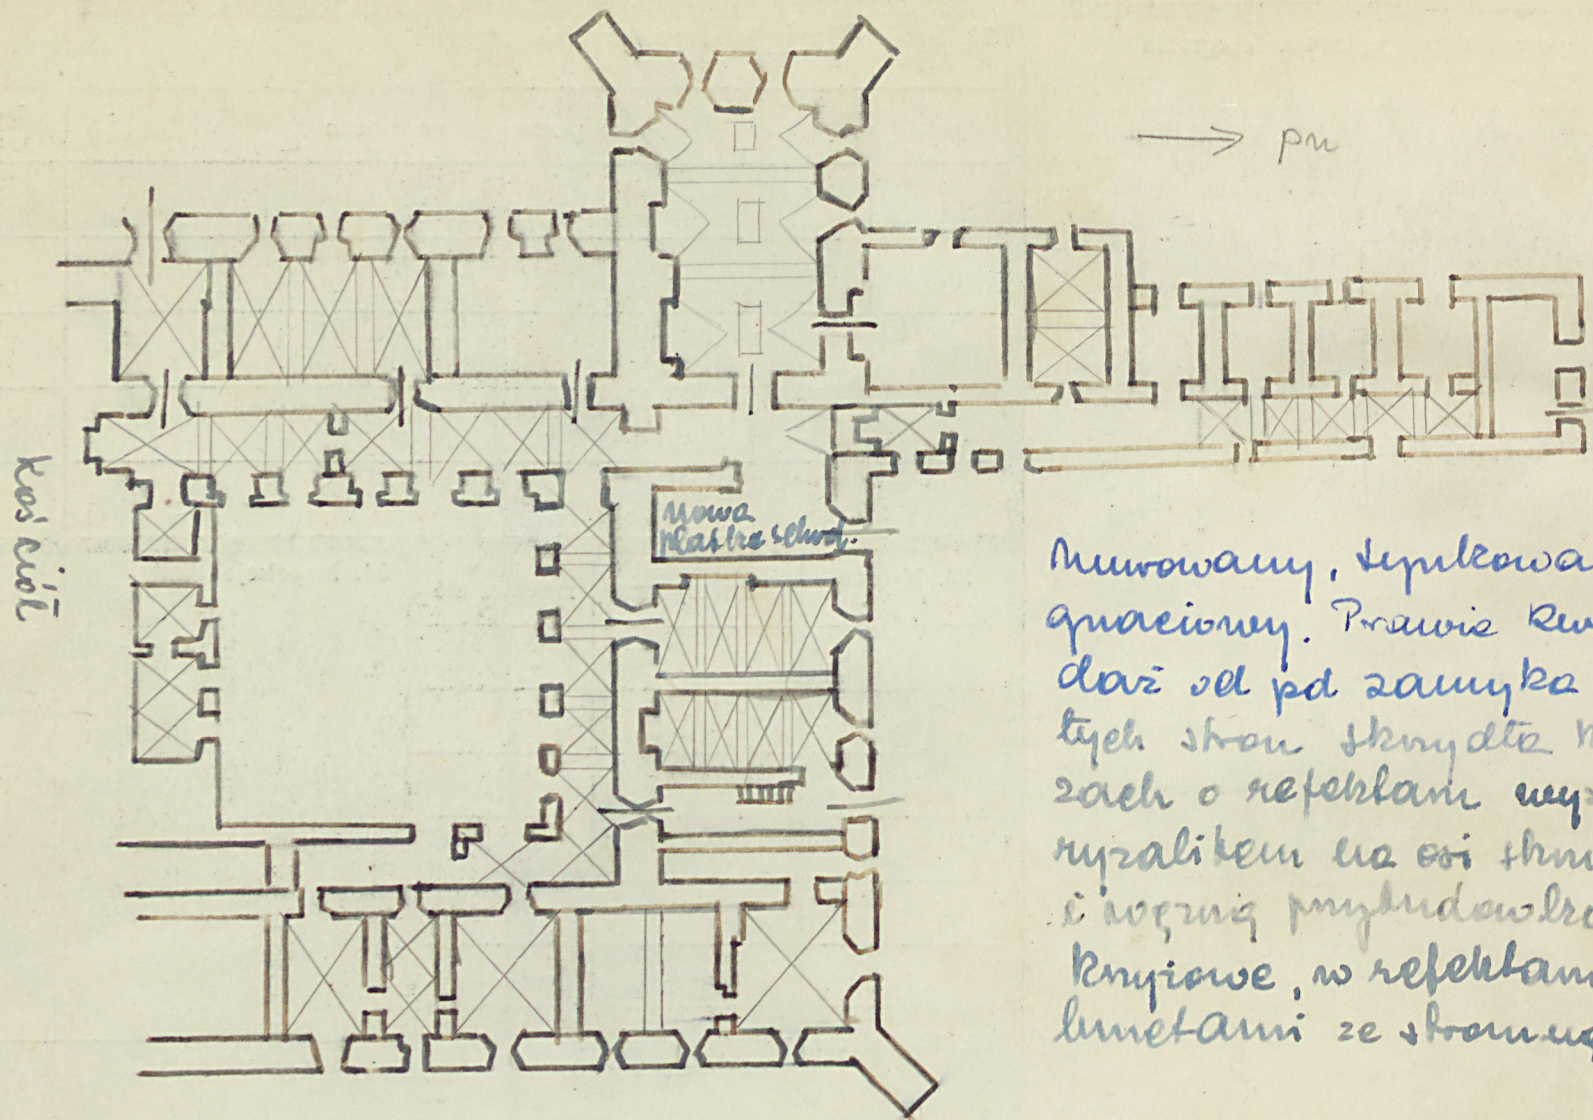 → pn
Kościół
nowa
klatka schod.
Murowany, tynkowa
gnaciowy. Prawie kw
daż od pd zamyka
tych stron skrzydła k
zach o refektarz wy
ryzalitem na osi skrz
i wężną przybudówką
krzyżowe, w refektarz
lunetami ze stron